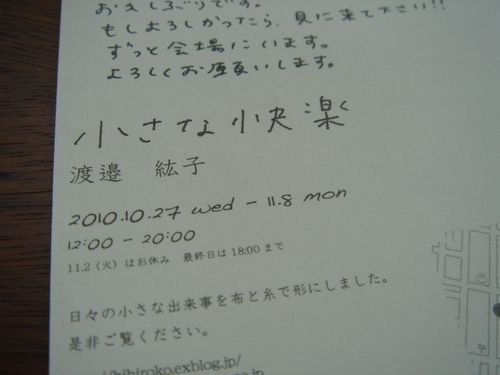 おひさしぶりです。
もしよろしかったら、見に来て下さい!!
ずっと会場にいます。
よろしくお願いします。
小さな小快楽
渡邉 紘子
2010.10.27 wed - 11.8 mon
12:00 - 20:00
11.2（火）はお休み 最終日は18:00まで
日々の小さな出来事を布と糸で形にしました。
是非ご覧ください。
hihiroko.exblog.jp/